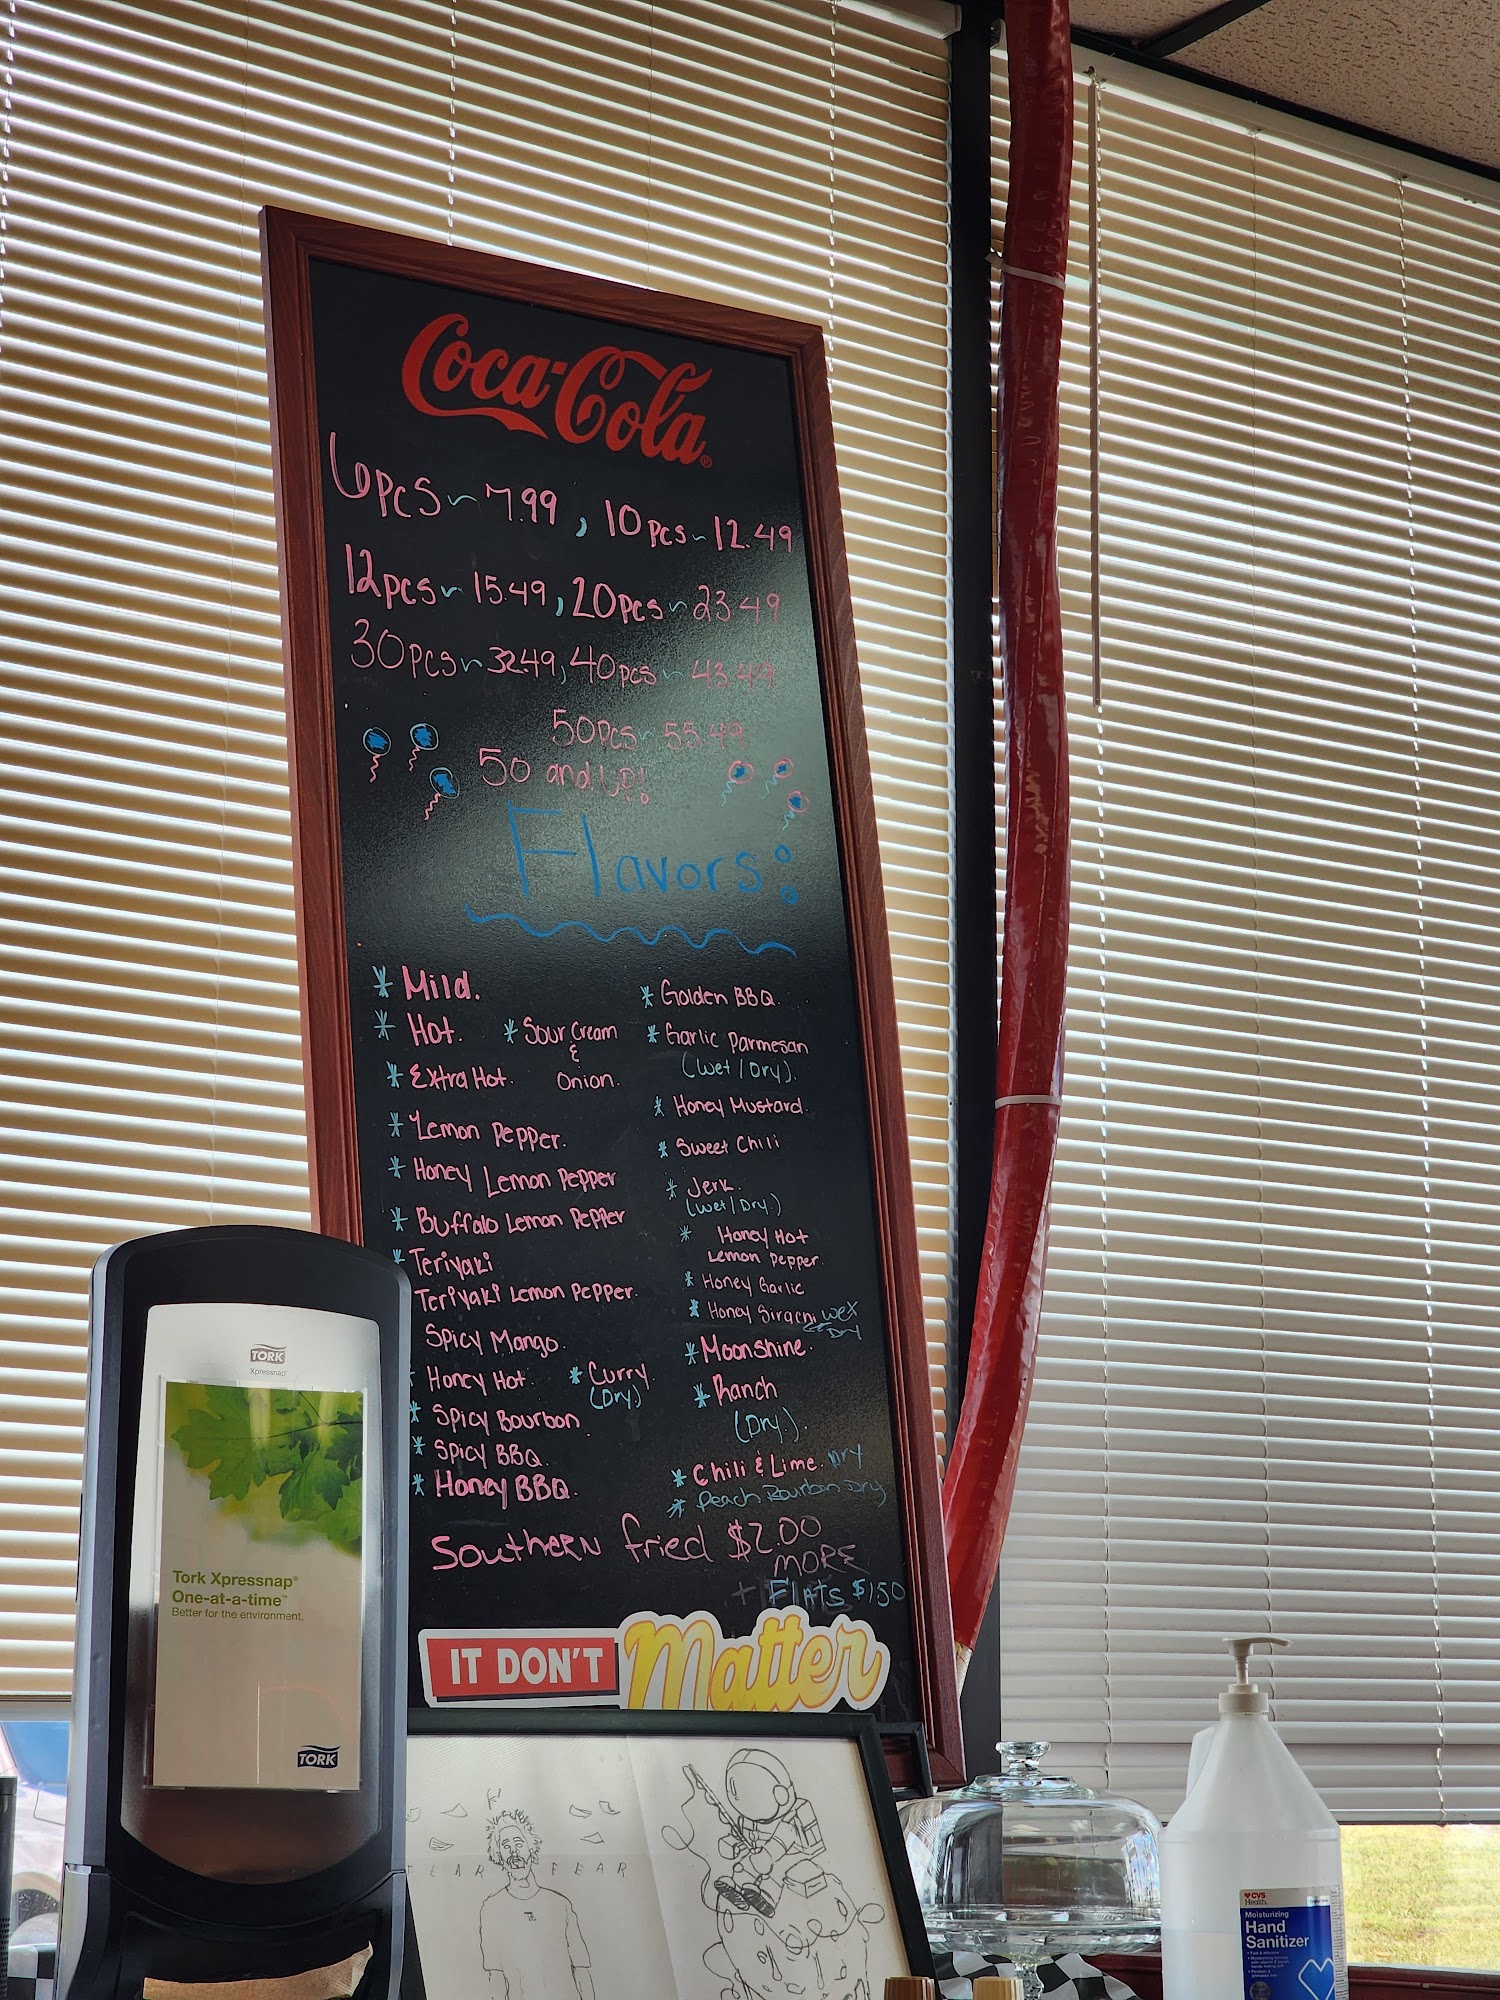 Coca-Cola®
6pcs ~ 7.99 , 10pcs ~ 12.49
12pcs ~ 15.49 , 20pcs ~ 23.49
30pcs ~ 32.49 , 40pcs ~ 43.49
50pcs ~ 55.49
50 and UP!
Flavors:
* Mild.
* Hot.
* Extra Hot.
* Sour Cream
&
Onion.
* Lemon Pepper.
* Honey Lemon Pepper
* Buffalo Lemon Pepper
* Teriyaki
Teriyaki Lemon Pepper.
Spicy Mango.
Honey Hot.
* Curry.
(Dry)
* Spicy Bourbon
* Spicy BBQ.
* Honey BBQ.
* Golden BBQ.
* Garlic Parmesan
(Wet / Dry).
* Honey Mustard.
* Sweet Chili
* Jerk.
(Wet / Dry.)
* Honey Hot
Lemon Pepper.
* Honey Garlic
* Honey Siracni
Dry
* Moonshine.
* Ranch
(Dry.)
* Chili & Lime. Dry
* Peach Bourbon Dry
Southern fried $2.00
MORE
+ Flats $1.50
IT DON'T Matter
TORK
Xpressnap®
Tork Xpressnap®
One-at-a-time™
Better for the environment.
TORK
FEAR
CVS
Health.
Moisturizing
Hand
Sanitizer